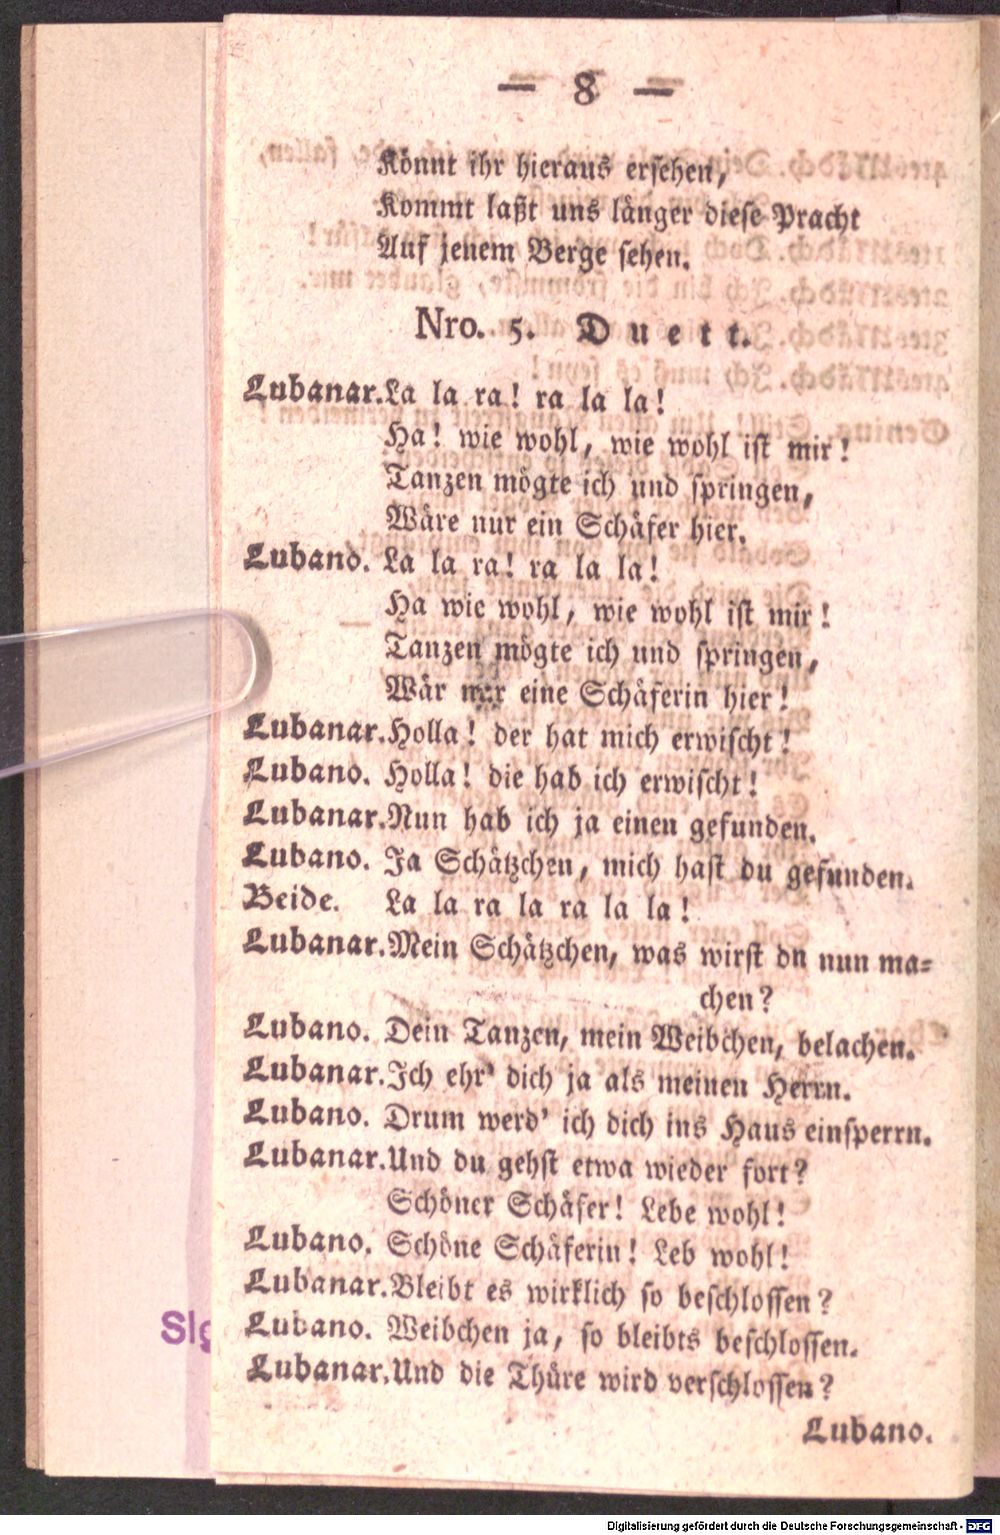 — 8 —
Könnt ihr hieraus ersehen,
Kommt laßt uns länger diese Pracht
Auf jenem Berge sehen.
Nro. 5. Duett.
Lubanar. La la ra! ra la la!
Ha! wie wohl, wie wohl ist mir!
Tanzen mögte ich und springen,
Wäre nur ein Schäfer hier.
Lubano. La la ra! ra la la!
Ha wie wohl, wie wohl ist mir!
Tanzen mögte ich und springen,
Wär nur eine Schäferin hier!
Lubanar. Holla! der hat mich erwischt!
Lubano. Holla! die hab ich erwischt!
Lubanar. Nun hab ich ja einen gefunden.
Lubano. Ja Schätzchen, mich hast du gefunden.
Beide. La la ra la ra la la!
Lubanar. Mein Schätzchen, was wirst dn nun ma-
chen?
Lubano. Dein Tanzen, mein Weibchen, belachen.
Lubanar. Ich ehr' dich ja als meinen Herrn.
Lubano. Drum werd' ich dich ins Haus einsperrn.
Lubanar. Und du gehst etwa wieder fort?
Schöner Schäfer! Lebe wohl!
Lubano. Schöne Schäferin! Leb wohl!
Lubanar. Bleibt es wirklich so beschlossen?
Lubano. Weibchen ja, so bleibts beschlossen.
Lubanar. Und die Thüre wird verschlossen?
Lubano.
Slg
Digitalisierung gefördert durch die Deutsche Forschungsgemeinschaft - DFG